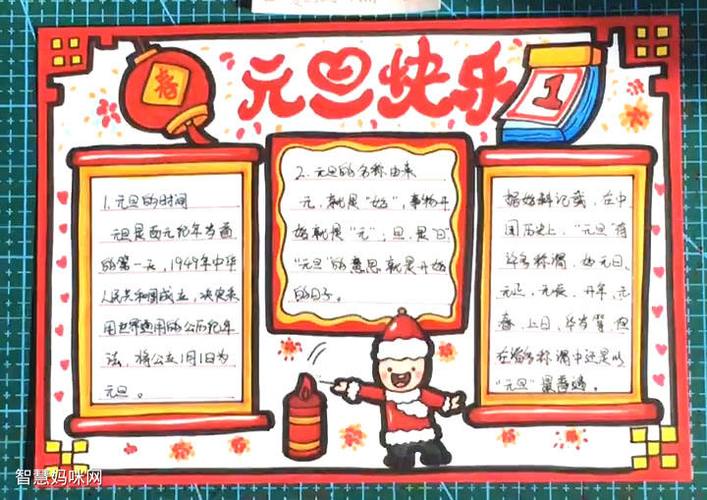 元旦快乐
春
1
1.元旦的时间
元旦是西元纪年岁首
的第一天,1949年中华
人民共和国成立,决定采
用世界通用的公历纪年
法,将公立1月1日为
元旦。
2.元旦的名称由来
元,就是“始”,事物开
始就是“元”;旦,是“日”
“元旦”的意思就是开始
的日子。
据始料记载,在中
国历史上,“元旦”有
许多称谓,如元日、
元正、元辰、开年、元
春、上日、华岁等,但
在诸多称谓中还是以
“元旦”最普遍。
智慧妈咪网